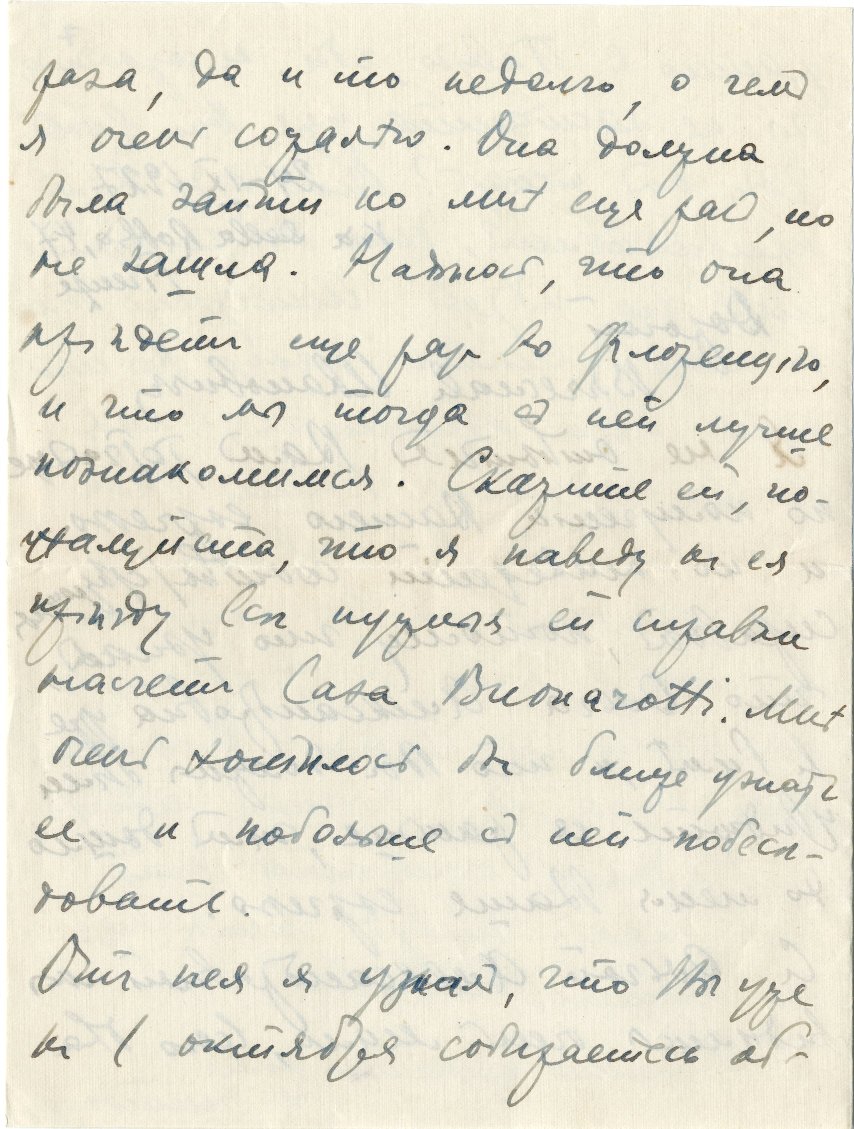 раза, да и то недолго, о чемъ
я очень сожалѣю. Она должна
была зайти ко мнѣ еще разъ, но
не зашла. Надѣюсь, что она
пріѣдетъ еще разъ во Флоренцію,
и что мы тогда съ ней лучше
познакомимся. Скажите ей, по-
жалуйста, что я наведу къ ея
пріѣзду всѣ нужныя ей справки
насчетъ Casa Buonarotti. Мнѣ
очень хотѣлось бы ближе узнать
ее и побольше съ ней побесѣ-
довать.
Отъ нея я узналъ, что Вы уже
къ 1 октября собираетесь об-